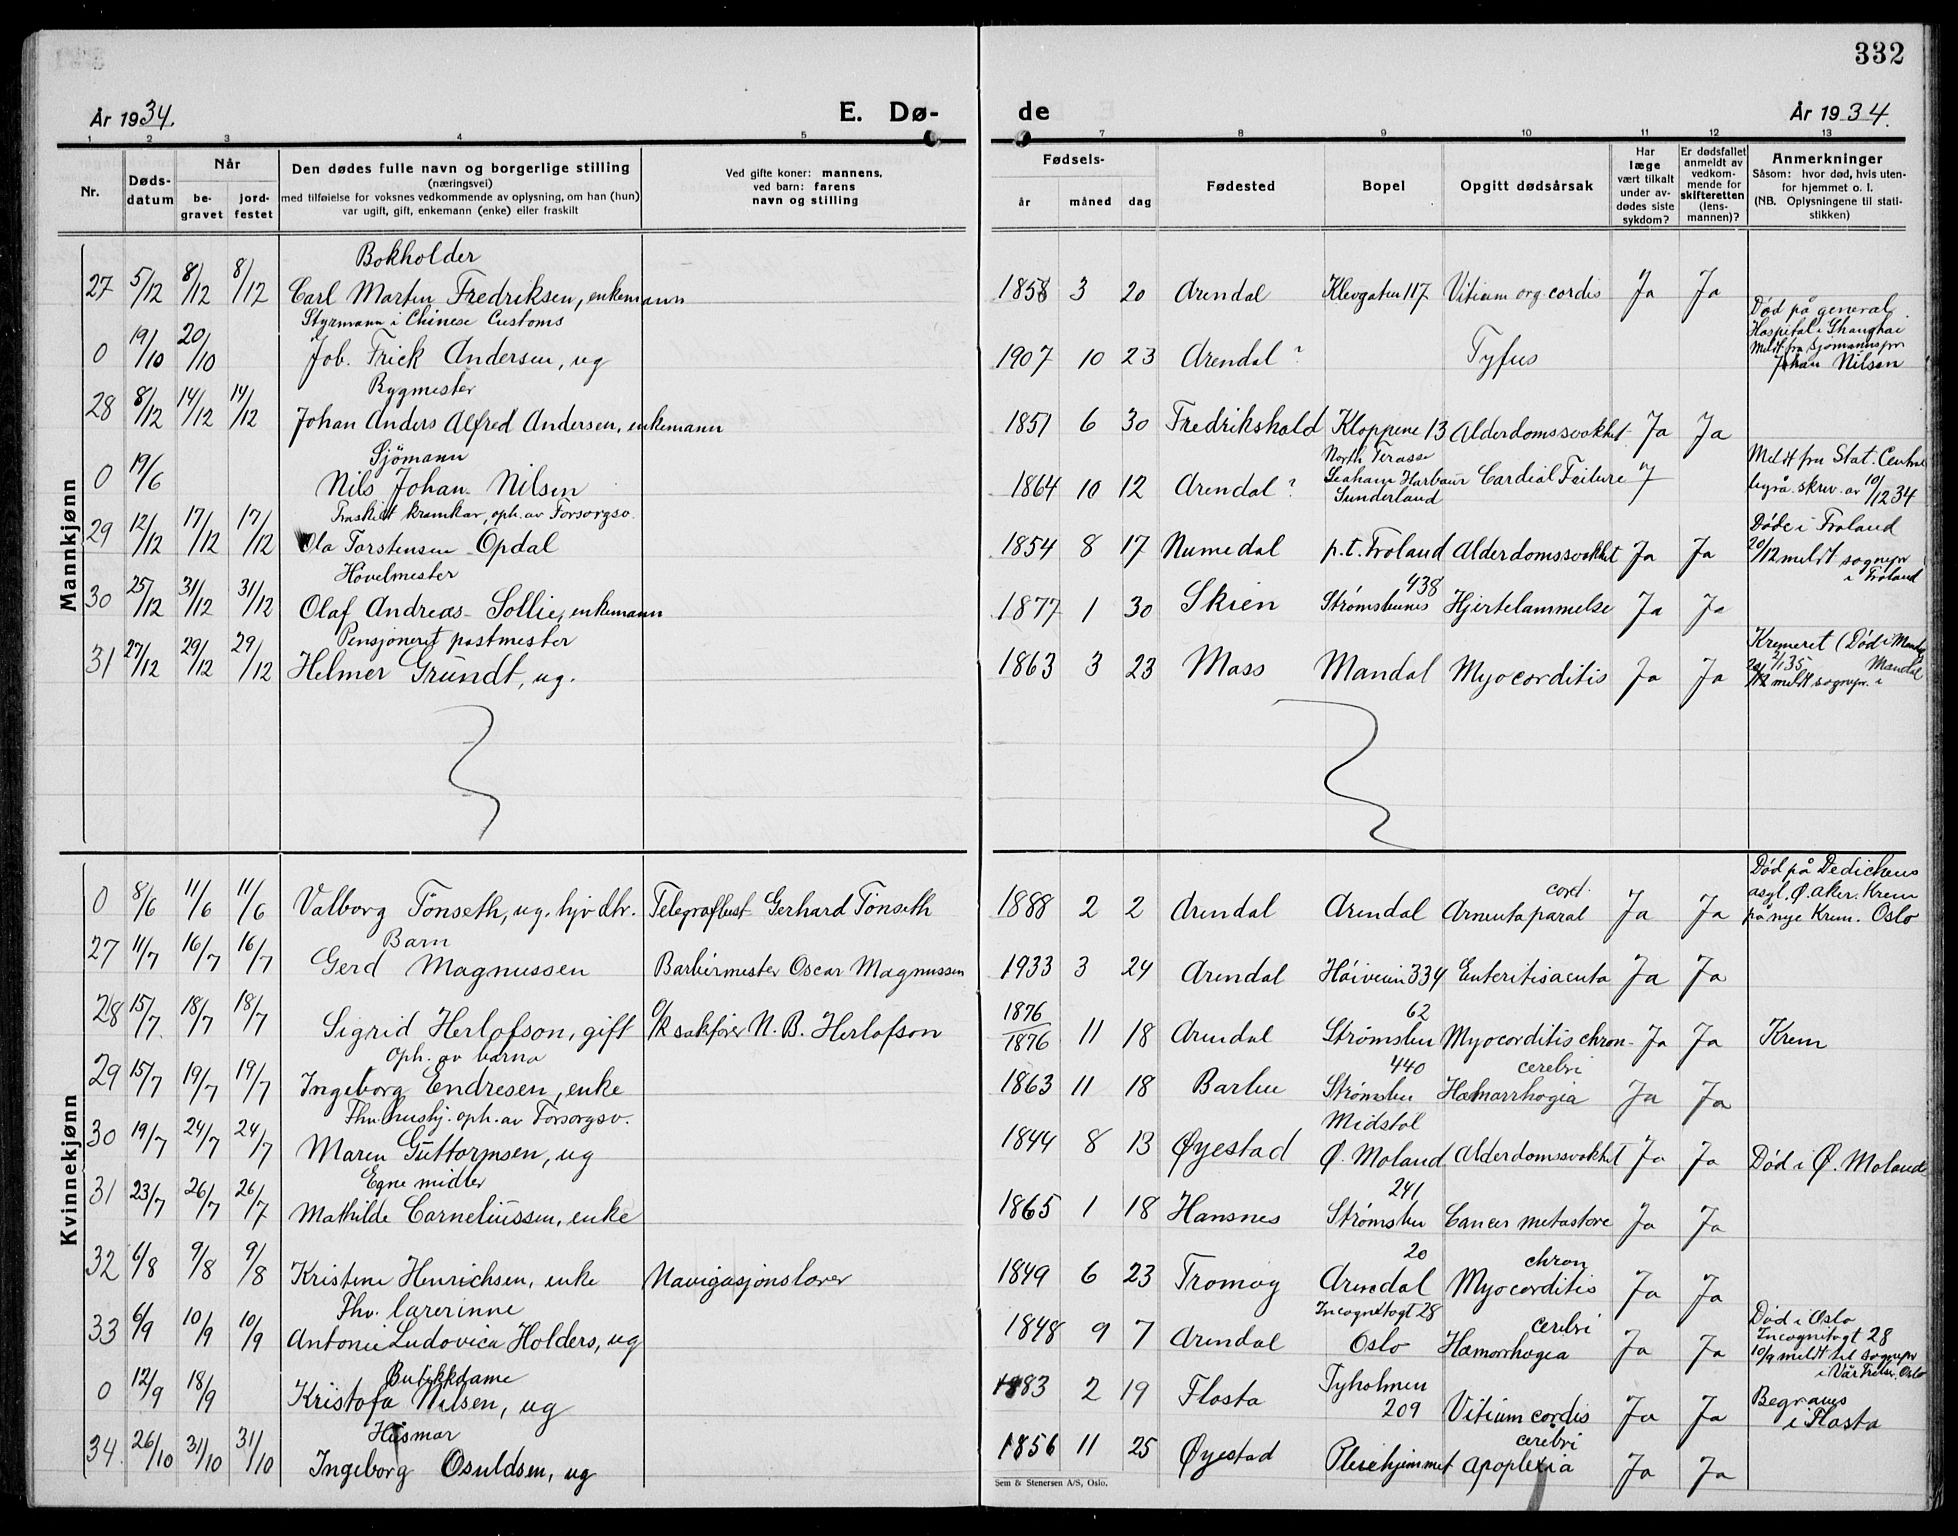 332
År 1934.
E. Dø-
de
År 1934.
1 2 3 4 5 7 8 9 10 11 12 13
Nr.
Døds-
datum
Når
be-
gravet
jord-
festet
Den dødes fulle navn og borgerlige stilling
(næringsvei)
med tilføielse for voksnes vedkommende av oplysning, om han (hun)
var ugift, gift, enkemann (enke) eller fraskilt
Ved gifte koner: mannens,
ved barn: farens
navn og stilling
Fødsels-
år måned dag
Fødested
Bopel
Opgitt dødsårsak
Har
læge
vært tilkalt
under av-
dødes siste
sykdom?
Er dødsfallet
anmeldt av
vedkom-
mende for
skifteretten
(lens-
mannen)?
Anmerkninger
Såsom: hvor død, hvis uten-
for hjemmet o. l.
(NB. Oplysningene til stati-
stikken)
Mannkjønn
Bokholder
27 5/12 8/12 8/12 Carl Martin Fredriksen, enkemann 1858 3 20 Arendal Klevgaten 117 Vitium org cordis Ja Ja
Styrmann i Chinese Customs
0 19/10 20/10 Job. Frick Andersen, ug 1907 10 23 Arendal ? Tyfus
Død på general
Hospital i Shanghai
Meldt fra Sjømannspr
Johan Nilsen
Bygmester
28 8/12 14/12 14/12 Johan Anders Alfred Andersen, enkemann 1851 6 30 Fredrikshald Kloppene 13 Alderdomssvakhet Ja Ja
Sjömann
0 19/6 Nils Johan Nilsen 1864 10 12 Arendal ? North Terasse
Seaham Harbour
Sunderland
Cardial Failure J
Meldt fra Stat. Centr
byrå skriv. av 10/12 34
Fraskilt kramkar, oph. av Forsorgsv.
29 12/12 17/12 17/12 Ola Torstensen Opdal 1854 8 17 Numedal p.t. Froland Alderdomssvakhet Ja Ja
Døde i Froland
20/12 meldt sognepr
i Froland
Hovelmester
30 25/12 31/12 31/12 Olaf Andreas Sollie, enkemann 1877 1 30 Skien Strømsbunes 438 Hjertelammelse Ja Ja
Pensjoneret postmester
31 27/12 29/12 29/12 Helmer Grundt, ug. 1863 3 23 Moss Mandal Myocorditis Ja Ja
Kremeret (Død i Mandal
2/1 35
meldt sognepr. i Mandal
Kvinnekjønn
0 8/6 11/6 11/6 Valborg Tönseth, ug. hjv dtr. Telegrafbest Gerhard Tönseth 1888 2 2 Arendal Arendal cord. Ja Ja
Død på Dedichens
asyl. Ø. Aker. Krem
på nye Krem. Oslo
Barn
27 11/7 16/7 16/7 Gerd Magnussen Barbérmester Oscar Magnussen 1933 3 24 Arendal Höiveien 334 Enteritis acuta Ja Ja
28 15/7 18/7 18/7 Sigrid Herlofson, gift O/k sakfører N. B. Herlofson 1876
1876 11 18 Arendal Strømsbu 62 Myocorditis chron. Ja Ja Krem
Oph. av barna
29 15/7 19/7 19/7 Ingeborg Endresen, enke 1863 11 18 Barbu Strømsbu 440 Hæmorrhogia cerebri Ja Ja
Fhv. hushj. oph. av Forsorgsv.
30 19/7 24/7 24/7 Maren Guttormsen, ug 1844 8 13 Øyestad Midstol
Ø. Moland Alderdomssvakhet Ja Ja Død i Ø. Moland
Egne midler
31 23/7 26/7 26/7 Mathilde Corneliussen, enke 1865 1 18 Hansnes Strømsbu 241 Cancer metastore Ja Ja
32 6/8 9/8 9/8 Kristene Henrichsen, enke Navigasjonslærer 1849 6 23 Tromøy Arendal 20 Myocorditis chron Ja Ja
Fhv. lærerinne
33 6/9 10/9 10/9 Antonie Ludovica Holders, ug 1848 9 7 Arendal Incognitogt 28
Oslo Hæmorrhogia cerebri Ja Ja
Død i Oslo
Incognitogt 28
10/9 meldt til sognepr
i Vår Frelser. Oslo
Butikkdame
0 12/9 18/9 Kristofa Nilsen, ug 1883 2 19 Flosta Tyholmen
209 Vitium cordis Ja Ja
Begraves
i Flosta
Hismar
34 26/10 31/10 31/10 Ingeborg Osuldsen, ug 1856 11 25 Øyestad Pleiehjemmet apoplexia cerebri Ja Ja
Sem & Stenersen A/S, Oslo.